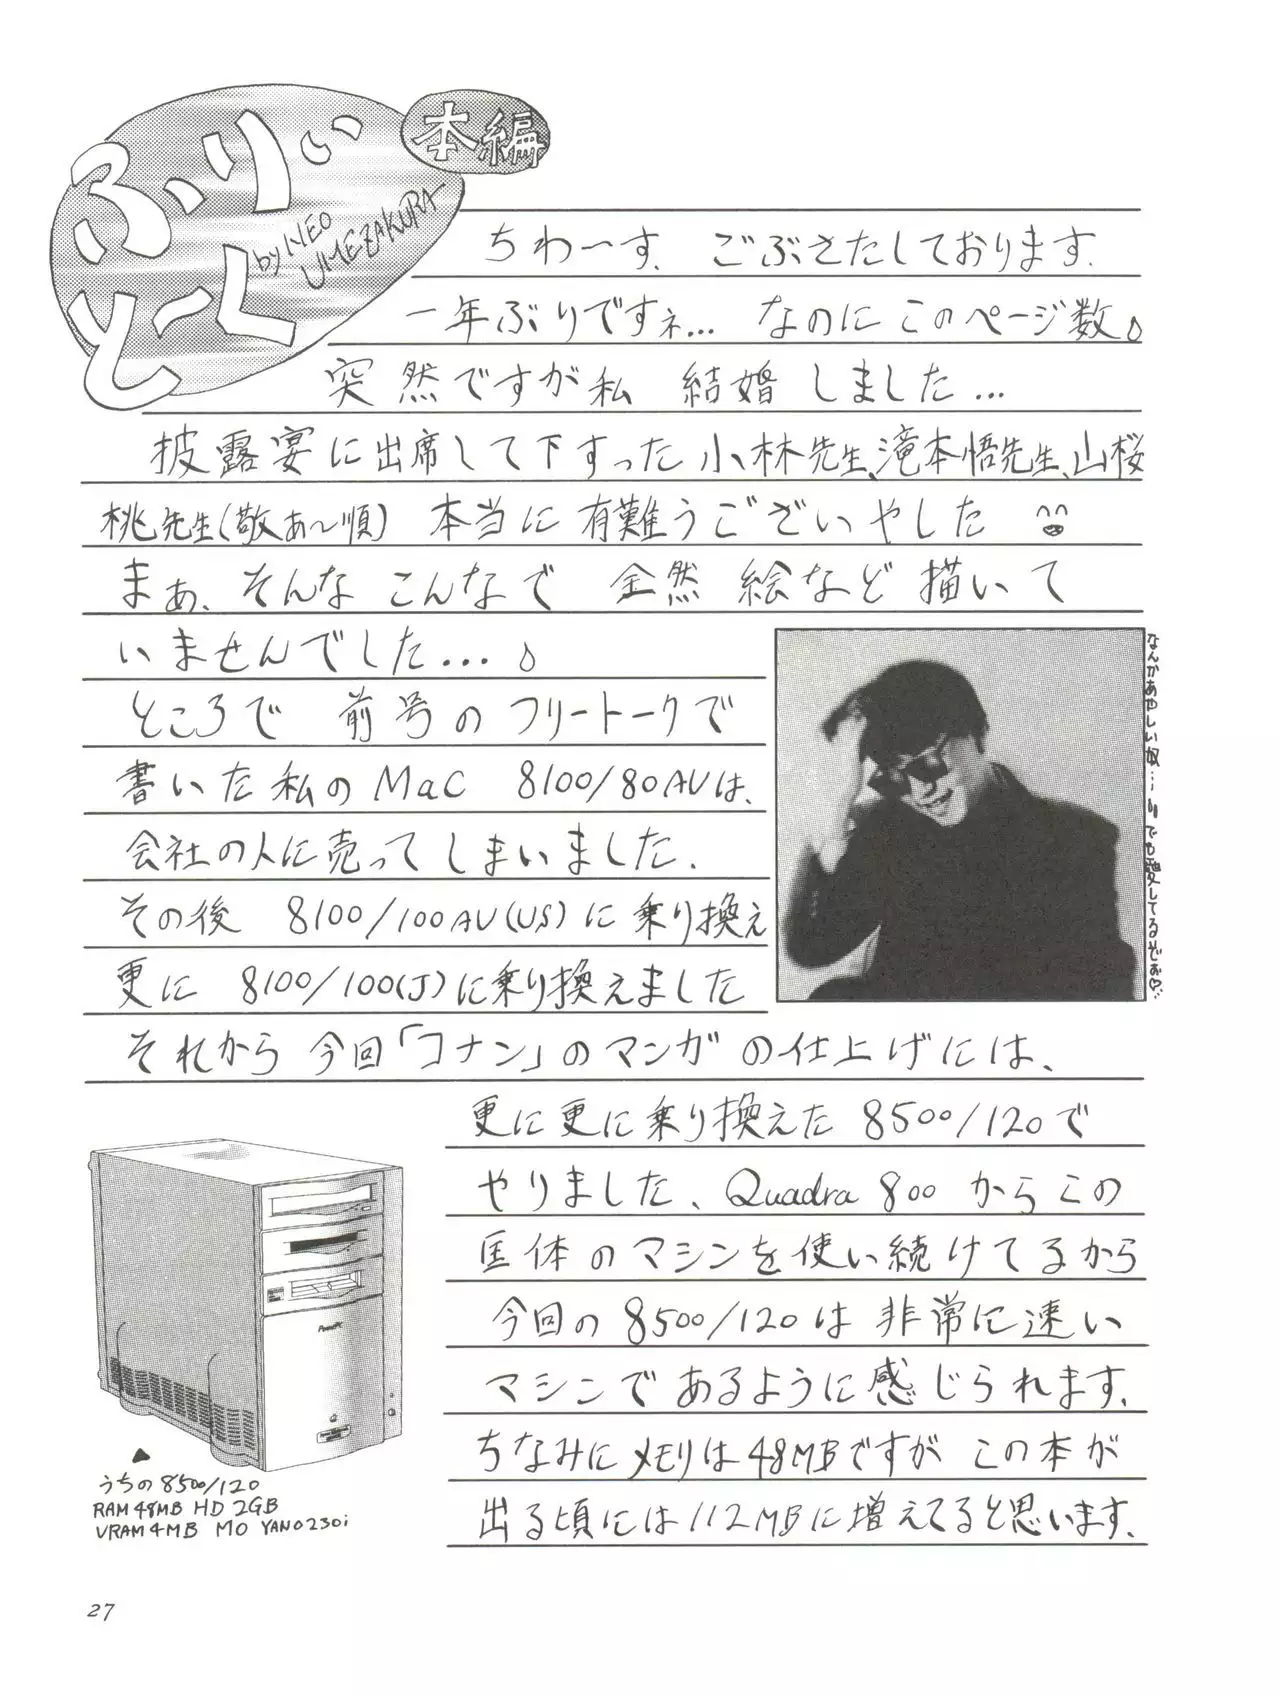 ふりぃとーく
本編
by NEO UMEZAKURA
ちわーす. ごぶさたしております.
一年ぶりですネ… なのにこのページ数♪
突然ですが私 結婚しました…
披露宴に出席して下すった小林先生、滝本悟先生、山桜
桃先生(敬あ〜順) 本当に有難うございやした
まぁ、そんなこんなで 全然 絵など描いて
いませんでした…♪
ところで 前号のフリートークで
書いた私のMaC 8100/80AVは、
会社の人に売ってしまいました.
その後 8100/100AV(US)に乗り換え
更に 8100/100(J)に乗り換えました
それから 今回「コナン」のマンガの仕上げには、
更に更に乗り換えた 8500/120で
やりました、Quadra 800からこの
匡体のマシンを使い続けてるから
今回の8500/120は 非常に速い
マシンであるように感じられます.
ちなみにメモリは48MBですが この本が
出る頃には112MBに増えてると思います.
なんかあやしい奴… でも愛してるぞぉ♡…
PowerPC
うちの8500/120
RAM48MB HD 2GB
VRAM4MB MO YANO230i
27